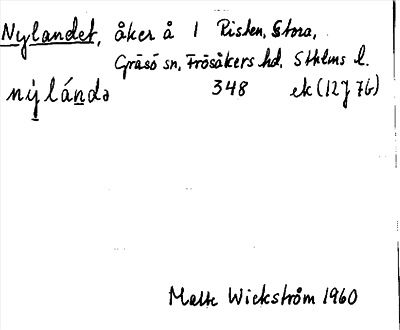 Nylandet, åker å 1 Risten, Stora,
Gräsö sn, Frösåkers hd, Sthlms l.
nýlándə 348 ek (12J 7b)
Malte Wickström 1960